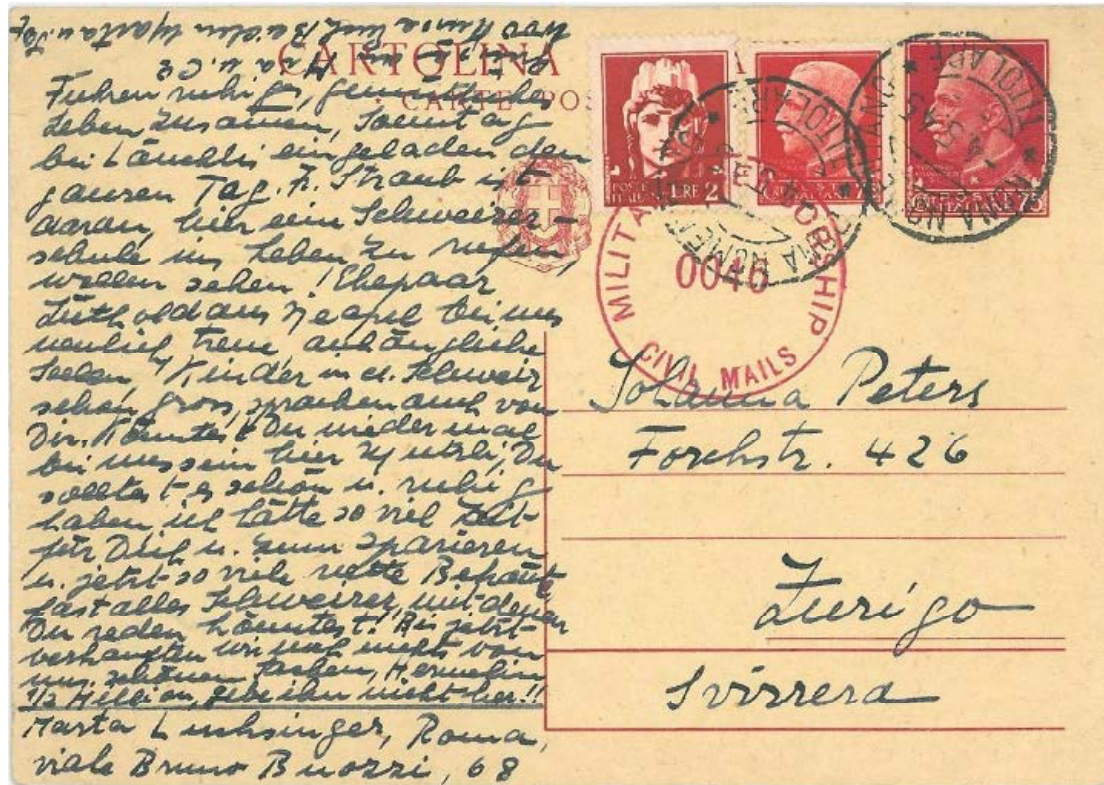 CARTOLINA
CARTE POS
Führen ruhiges, gemütliches
Leben zusamen, Sonntag
bei eingeladen den
ganzen Tag. Fr. Straub ist
daran, hier ein Schweizer-
schule ins Leben zu rufen,
wollen sehen! Ehepaar
Lüthold aus Neapel bei uns
neulich, treue, anhängliche
Seelen, Kinder in d. Schweiz
schon gross, sprachen auch von
Dir. Könntest Du wieder mal
bei uns sein hier Du
solltest es schön u. ruhig
haben, ich hätte so viel Zeit
für Dich u. zum Spazieren
u. jetzt so viele nette Bekannte
fast alles Schweizer, mit denen
Du reden könntest! Bis jetzt
verkauften wir noch nichts von
uns. schönen Sachen, Hermelin
1/2 Million, gebe ihn nicht her!!
Marta Luchsinger, Roma,
viale Bruno Buozzi, 68
LIRE 2
MILITARY CENSORSHIP
0046
CIVIL MAILS
Johanna Peters
Forchstr. 426
Zurigo
Svizzera